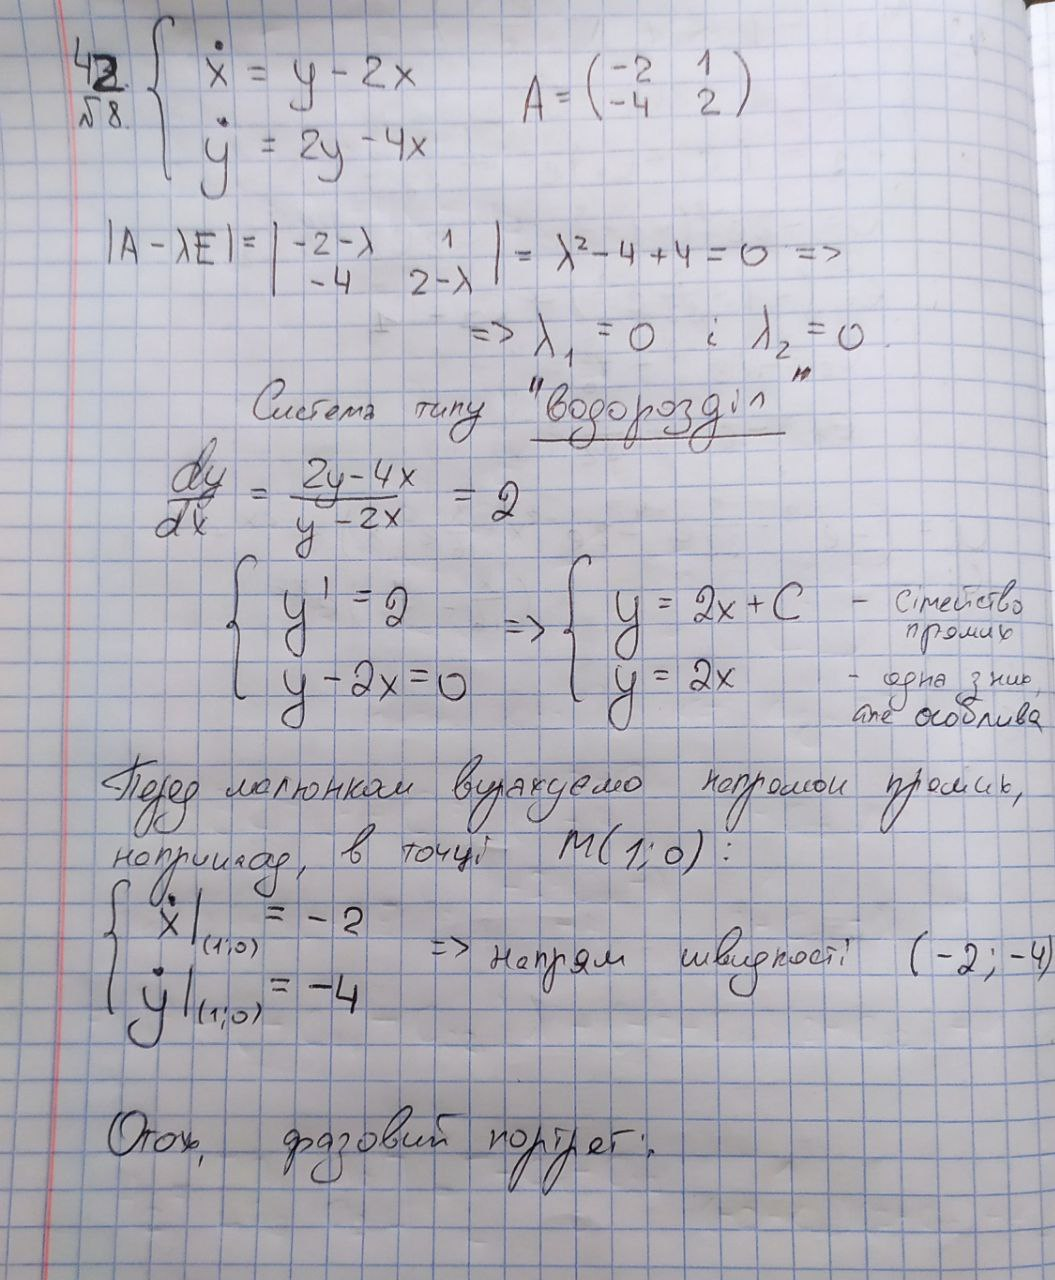 42.
№8.
{ ẋ = y - 2x
ẏ = 2y - 4x
A = ( -2 1
-4 2 )
|A - λE| = | -2-λ 1
-4 2-λ | = λ² - 4 + 4 = 0 =>
=> λ₁ = 0 і λ₂ = 0.
Система типу "Вододрозділ"
dy/dx = (2y-4x)/(y-2x) = 2
{ y' = 2
y - 2x = 0
=> { y = 2x + C - сімейство прямих
y = 2x - одна з них, але особлива
Перед малюнком вирахуємо напрямок прямих,
наприклад, в точці M(1;0):
{ ẋ|(1;0) = -2
ẏ|(1;0) = -4
=> напрям швидкості (-2; -4)
Отож, фазовий портрет: